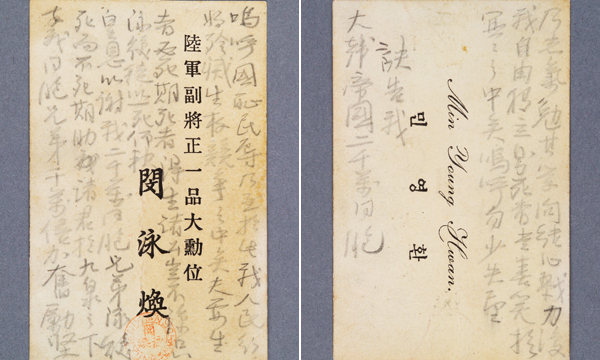 陸軍副將正一品大勳位
閔泳煥
嗚呼國恥民辱乃至於此我人民行
將殄滅生存競爭之中矣夫要生
者必死期死者得生諸公豈不諒只
泳煥徒以一死仰報
皇恩以謝我二千萬同胞兄弟泳煥
死而不死期助諸君於九泉之下
幸我同胞兄弟千萬億加奮勵堅
Min Young Hwan.
민영환
乃志氣勉其學問結心戮力復
我自由獨立即死者當喜笑於
冥冥之中矣嗚呼勿少失望
訣告我
大韓帝國二千萬同胞